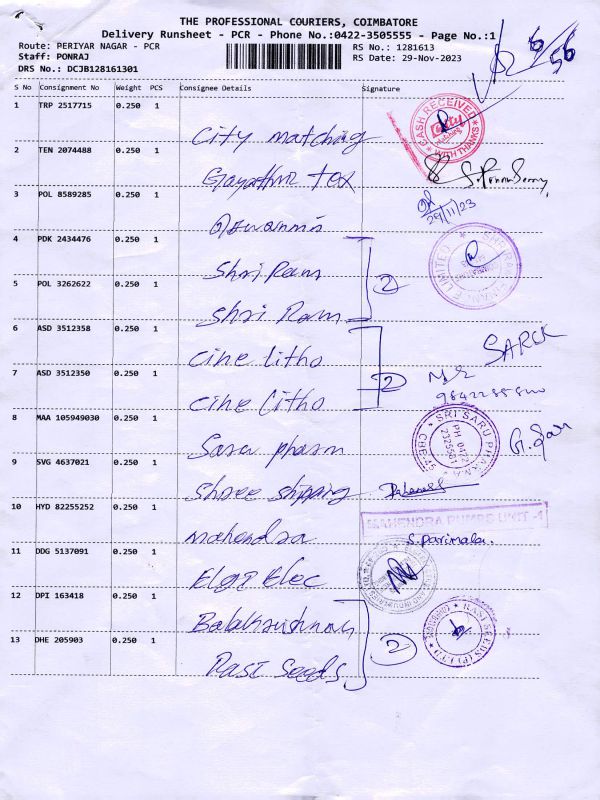 THE PROFESSIONAL COURIERS, COIMBATORE
Delivery Runsheet - PCR - Phone No.:0422-3505555 - Page No.:1
Route: PERIYAR NAGAR - PCR
RS No.: 1281613
Staff: PONRAJ
RS Date: 29-Nov-2023
DRS No.: DCJB128161301
6/56
S No Consignment No Weight PCS Consignee Details Signature
1 TRP 2517715 0.250 1 City matching
CASH RECEIVED WITH THANKS
2 TEN 2074488 0.250 1 Gayathiri tex
3 POL 8589285 0.250 1
29/11/23
4 PDK 2434476 0.250 1 Shri Ram
5 POL 3262622 0.250 1 Shri Ram
2
6 ASD 3512358 0.250 1 Cine litho
SARCK
7 ASD 3512350 0.250 1 Cine Litho
2
8 MAA 105949030 0.250 1 Saru pharm
SRI SARU PHARMA
PH 0422
9 SVG 4637021 0.250 1 Shree shipping
10 HYD 82255252 0.250 1 Mahendra
MAHENDRA PUMPS UNIT -1
S. Parimala.
11 DDG 5137091 0.250 1 Elgi Elec
12 DPI 163418 0.250 1 Balakrishnan
13 DHE 205903 0.250 1 Rasi Seeds
2
RASI SEEDS (P) LTD